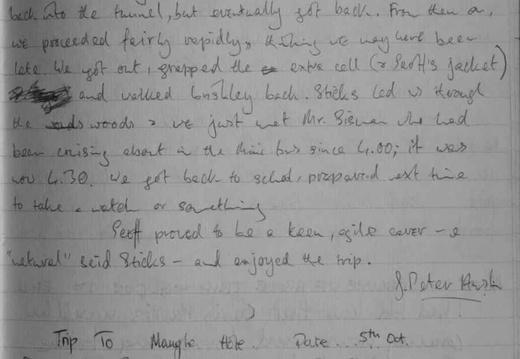 back into the tunnel, but eventually got back. From then on,
we proceeded fairly rapidly, thinking we may have been
late. We got out, grapped the extra cell (& Geoff's jacket)
and walked briskley back. Sticks led us through
the woods & we just met Mr. who had
been cruising about in the mini bus since 4.00; it was
now 4.30. We got back to school, prepared next time
to take a watch or something
Geoff proved to be a keen, agile caver - a
"natural" said Sticks - and enjoyed the trip.
J. Peter
Trip To Hole. Date... 5th Oct.